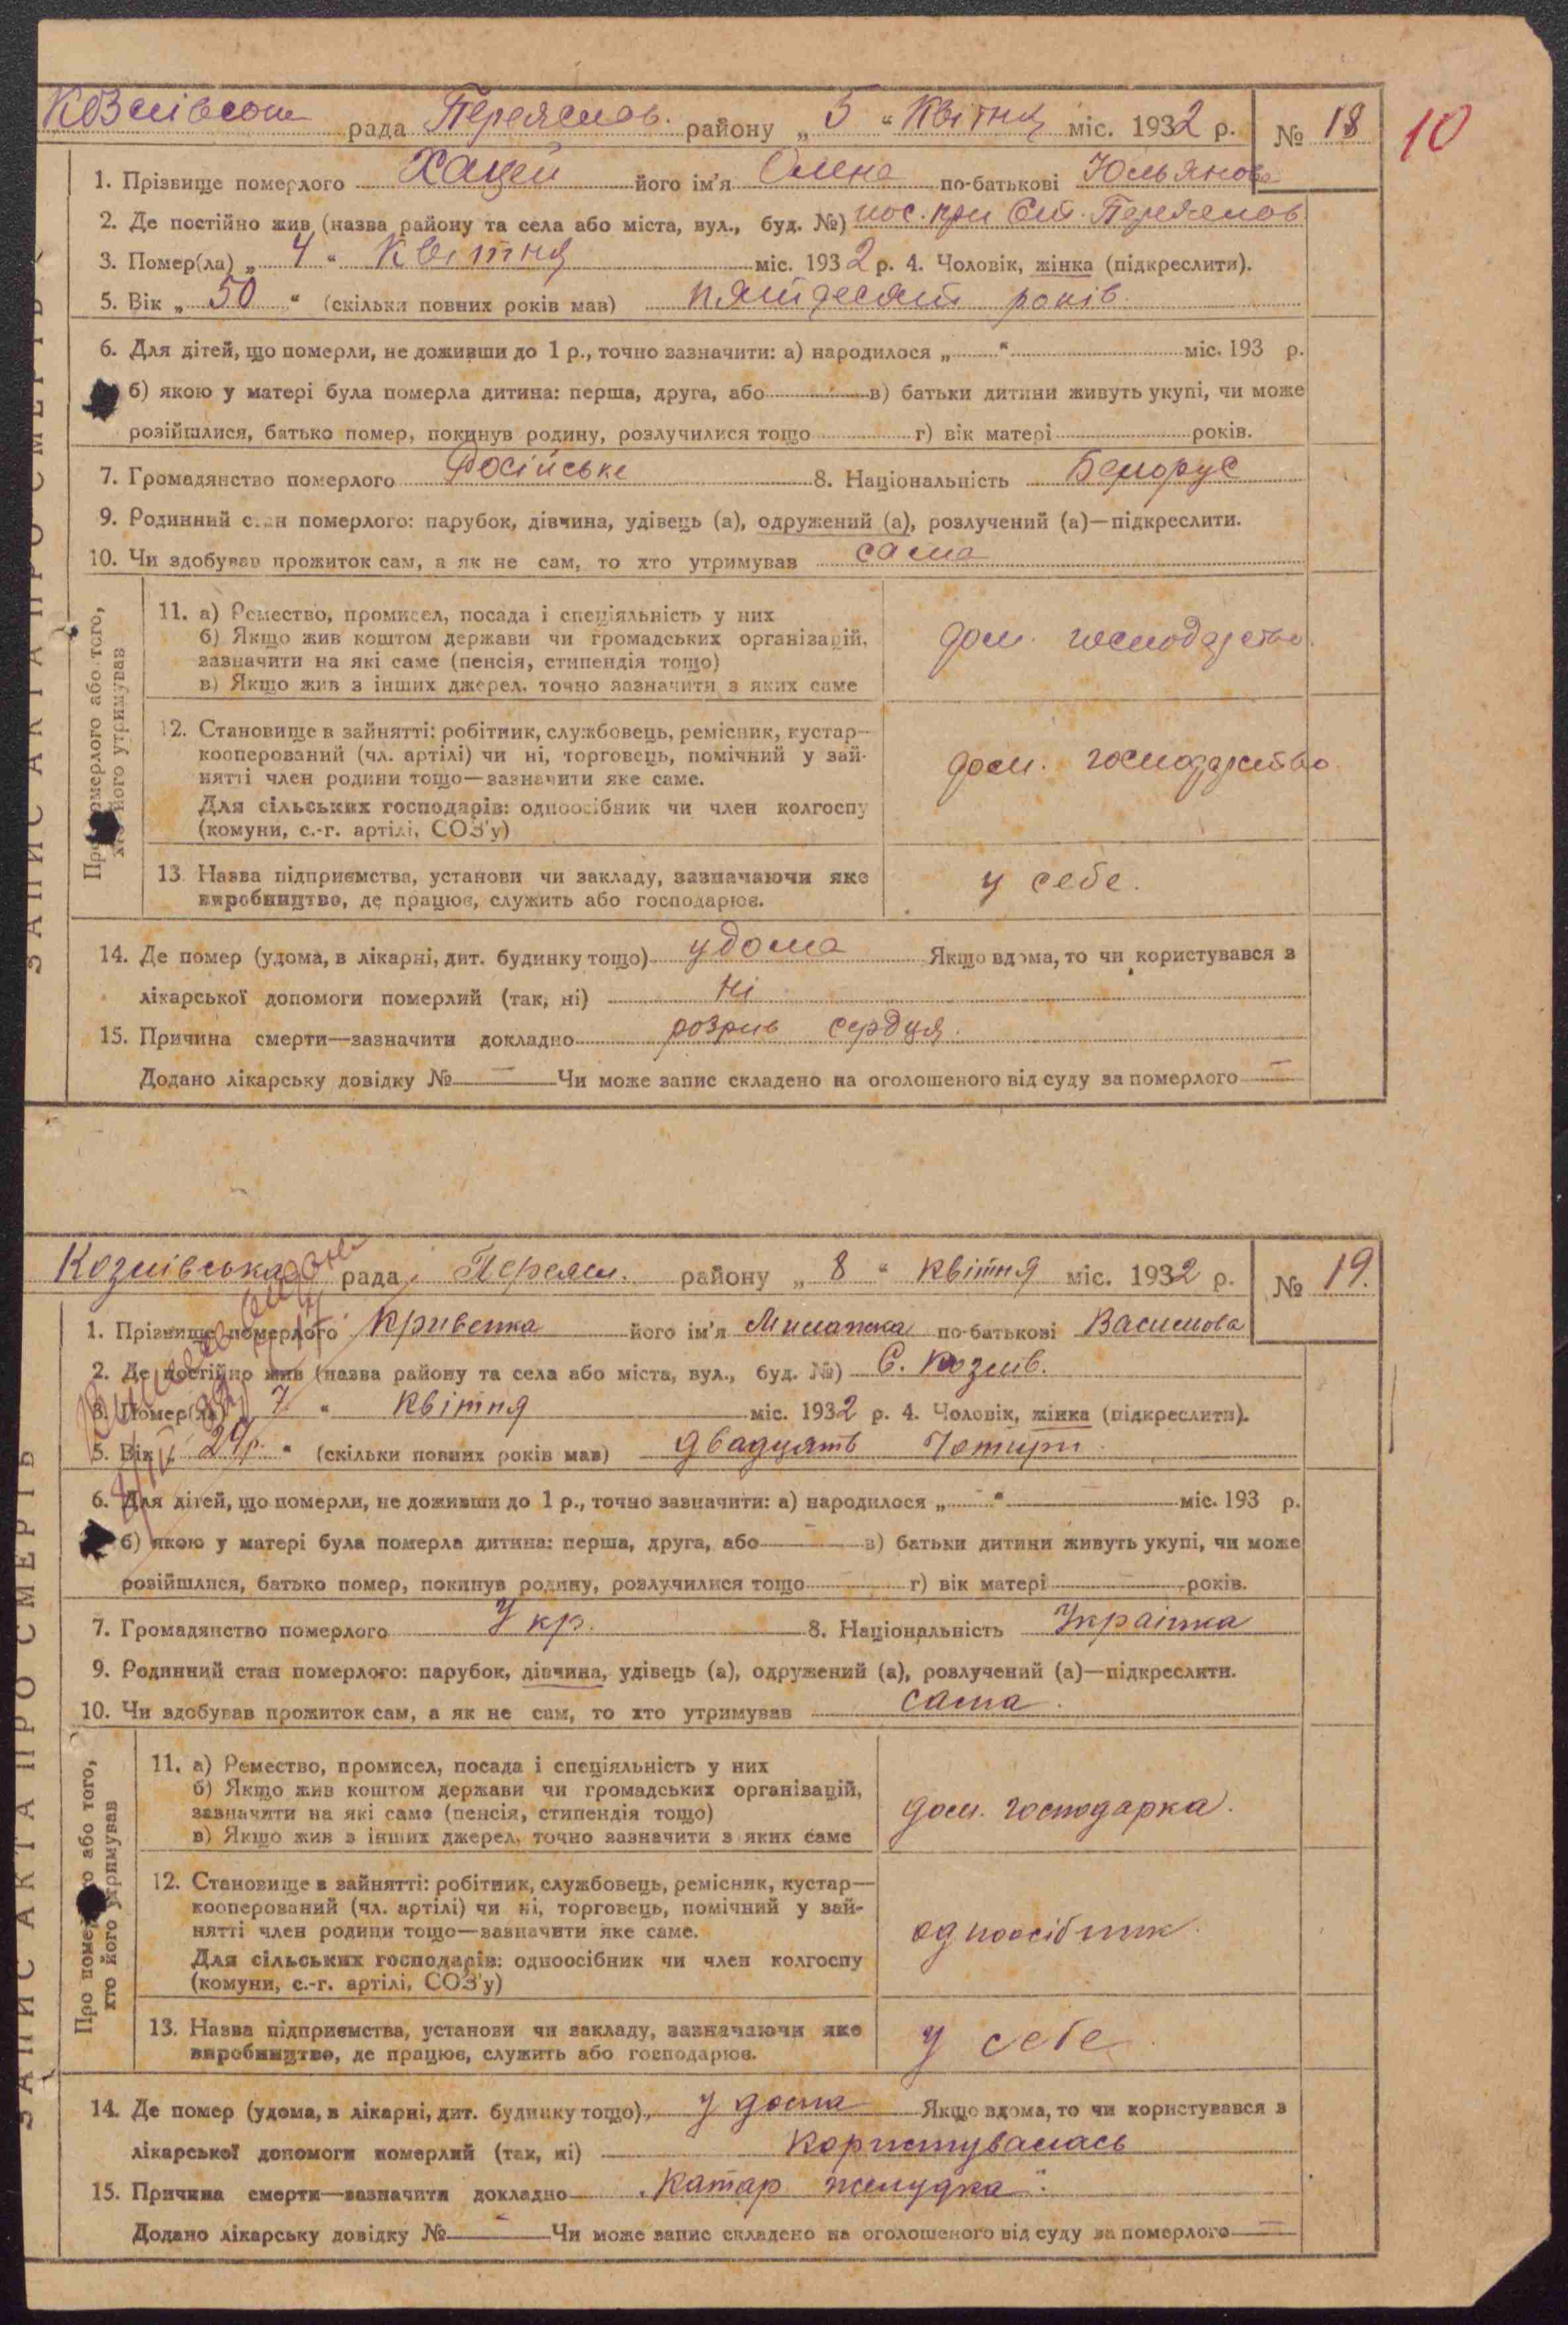 рада Переяслов. району „ 5 “ Квітня міс. 1932 р. № 18
10
1. Прізвище померлого Хацей його ім'я Олена по-батькові Юльянова
2. Де постійно жив (назва району та села або міста, вул., буд. №) пос. при Ст. Переяслов
3. Помер(ла) „ 4 “ Квітня міс. 1932 р. 4. Чоловік, жінка (підкреслити).
5. Вік „ 50 “ (скільки повних років мав) пятдесят років.
6. Для дітей, що померли, не доживши до 1 р., точно зазначити: а) народилося „ “ міс. 193 р.
б) якою у матері була померла дитина: перша, друга, або в) батьки дитини живуть укупі, чи може
розійшлися, батько помер, покинув родину, розлучилися тощо г) вік матері років.
7. Громадянство померлого Російське 8. Національність Белорус
9. Родинний стан померлого: парубок, дівчина, удівець (а), одружений (а), розлучений (а)—підкреслити.
10. Чи здобував прожиток сам, а як не сам, то хто утримував сама
ЗАПИС АКТА ПРО СМЕРТЬ
Про померлого або того,
хто його утримував
11. а) Ремество, промисел, посада і спеціяльність у них
б) Якщо жив коштом держави чи громадських організацій,
зазначити на які саме (пенсія, стипендія тощо)
в) Якщо жив з інших джерел, точно зазначити з яких саме
дом. господарство.
12. Становище в зайнятті: робітник, службовець, ремісник, кустар—
кооперований (чл. артілі) чи ні, торговець, помічний у зай-
нятті член родини тощо—зазначити яке саме.
Для сільських господарів: одноосібник чи член колгоспу
(комуни, с.-г. артілі, СОЗ'у)
дом. господарство
13. Назва підприємства, установи чи закладу, зазначаючи яке
виробництво, де працює, служить або господарює.
у себе.
14. Де помер (удома, в лікарні, дит. будинку тощо) удома Якщо вдома, то чи користувався з
лікарської допомоги померлий (так, ні) ні
15. Причина смерти—зазначити докладно розрив сердця.
Додано лікарську довідку № — Чи може запис складено на оголошеного від суду за померлого —
Козлівська рада Переясл. району „ 8 “ квітня міс. 1932 р. № 19.
1. Прізвище померлого його ім'я по-батькові Василова
2. Де постійно жив (назва району та села або міста, вул., буд. №) С. Козлів.
3. Помер(ла) „ 7 “ Квітня міс. 1932 р. 4. Чоловік, жінка (підкреслити).
5. Вік „ 24р. “ (скільки повних років мав) двадцять чотири.
6. Для дітей, що померли, не доживши до 1 р., точно зазначити: а) народилося „ “ міс. 193 р.
б) якою у матері була померла дитина: перша, друга, або в) батьки дитини живуть укупі, чи може
розійшлися, батько помер, покинув родину, розлучилися тощо г) вік матері років.
7. Громадянство померлого Укр. 8. Національність Українка
9. Родинний стан померлого: парубок, дівчина, удівець (а), одружений (а), розлучений (а)—підкреслити.
10. Чи здобував прожиток сам, а як не сам, то хто утримував сама.
ЗАПИС АКТА ПРО СМЕРТЬ
Про померлого або того,
хто його утримував
11. а) Ремество, промисел, посада і спеціяльність у них
б) Якщо жив коштом держави чи громадських організацій,
зазначити на які саме (пенсія, стипендія тощо)
в) Якщо жив з інших джерел, точно зазначити з яких саме
дом. господарка.
12. Становище в зайнятті: робітник, службовець, ремісник, кустар—
кооперований (чл. артілі) чи ні, торговець, помічний у зай-
нятті член родини тощо—зазначити яке саме.
Для сільських господарів: одноосібник чи член колгоспу
(комуни, с.-г. артілі, СОЗ'у)
одноосібник.
13. Назва підприємства, установи чи закладу, зазначаючи яке
виробництво, де працює, служить або господарює.
у себе.
14. Де помер (удома, в лікарні, дит. будинку тощо) у дома Якщо вдома, то чи користувався з
лікарської допомоги померлий (так, ні) користувалась
15. Причина смерти—зазначити докладно „Катар желудка“.
Додано лікарську довідку № — Чи може запис складено на оголошеного від суду за померлого —